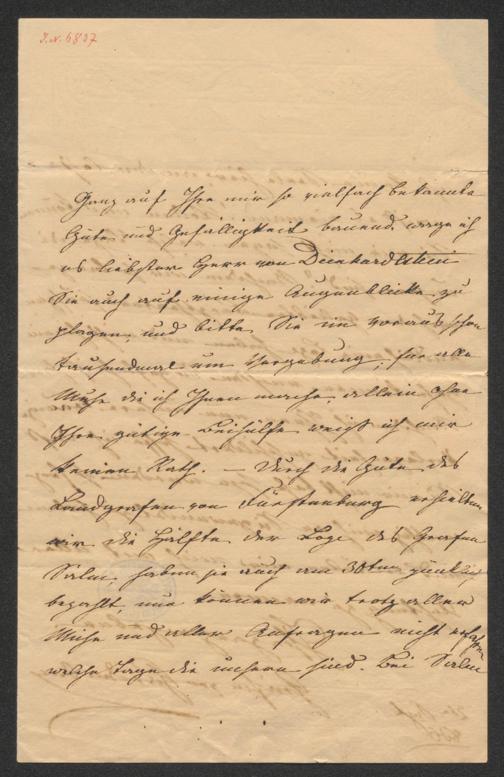 I.N. 6837
Ganz auf Ihre mir so vielfach bekannte
Güte und Gefälligkeit bauend, wage ich
es liebster Herr von Deinhardstein
Sie auch auf einige Augenblicke zu
plagen, und bitte Sie im voraus schon
tausendmal um Vergebung, für alle
Mühe die ich Ihnen mache, allein ohne
Ihre gütige Beihülfe weiß ich mir
keinen Rath. – Durch die Güte des
Landgrafen von Fürstenburg erhielten
wir die Hälfte der Loge des Grafen
Salm, haben sie auch am 30ten
bezahlt, nun können wir trotz aller
Mühe und aller Anfragen nicht erfahren
welche Tage die unsern sind. Bei Salm